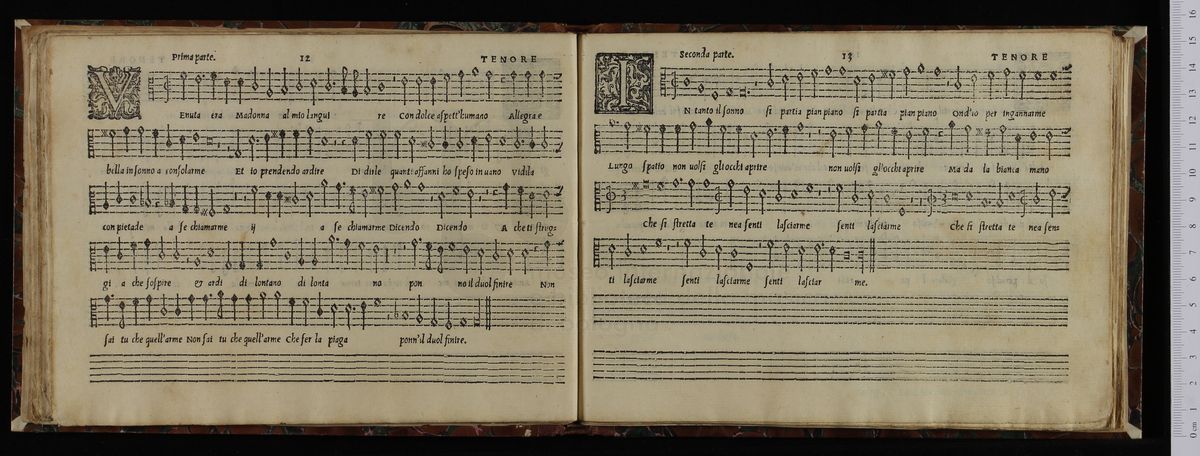 Prima parte. 12 TENORE
VEnuta era Madonna al mio langui re Con dolce aspett'humano Allegra e
bella in sonno a consolarme Et io prendendo ardire Di dirle quanti affanni ho speso in uano Vidila
con pietade a se chiamarme ij a se chiamarme Dicendo Dicendo A che ti strug-
gi a che sospire & ardi di lontano di lonta no pon no il duol finire Non
sai tu che quell'arme Non sai tu che quell'arme Che fer la piaga ponn'il duol finire.
Seconda parte. 13 TENORE
IN tanto il sonno si partia pian piano si partia pian piano Ond'io per ingannarme
Lungo spatio non uolsi gli occhi aprire non uolsi gl'occhi aprire Ma da la bianca mano
Che si stretta te nea senti lasciarme senti lasciarme Che si stretta te nea sen-
ti lasciarme senti lasciarme senti lasciar me.
0 cm 1 2 3 4 5 6 7 8 9 10 11 12 13 14 15 16